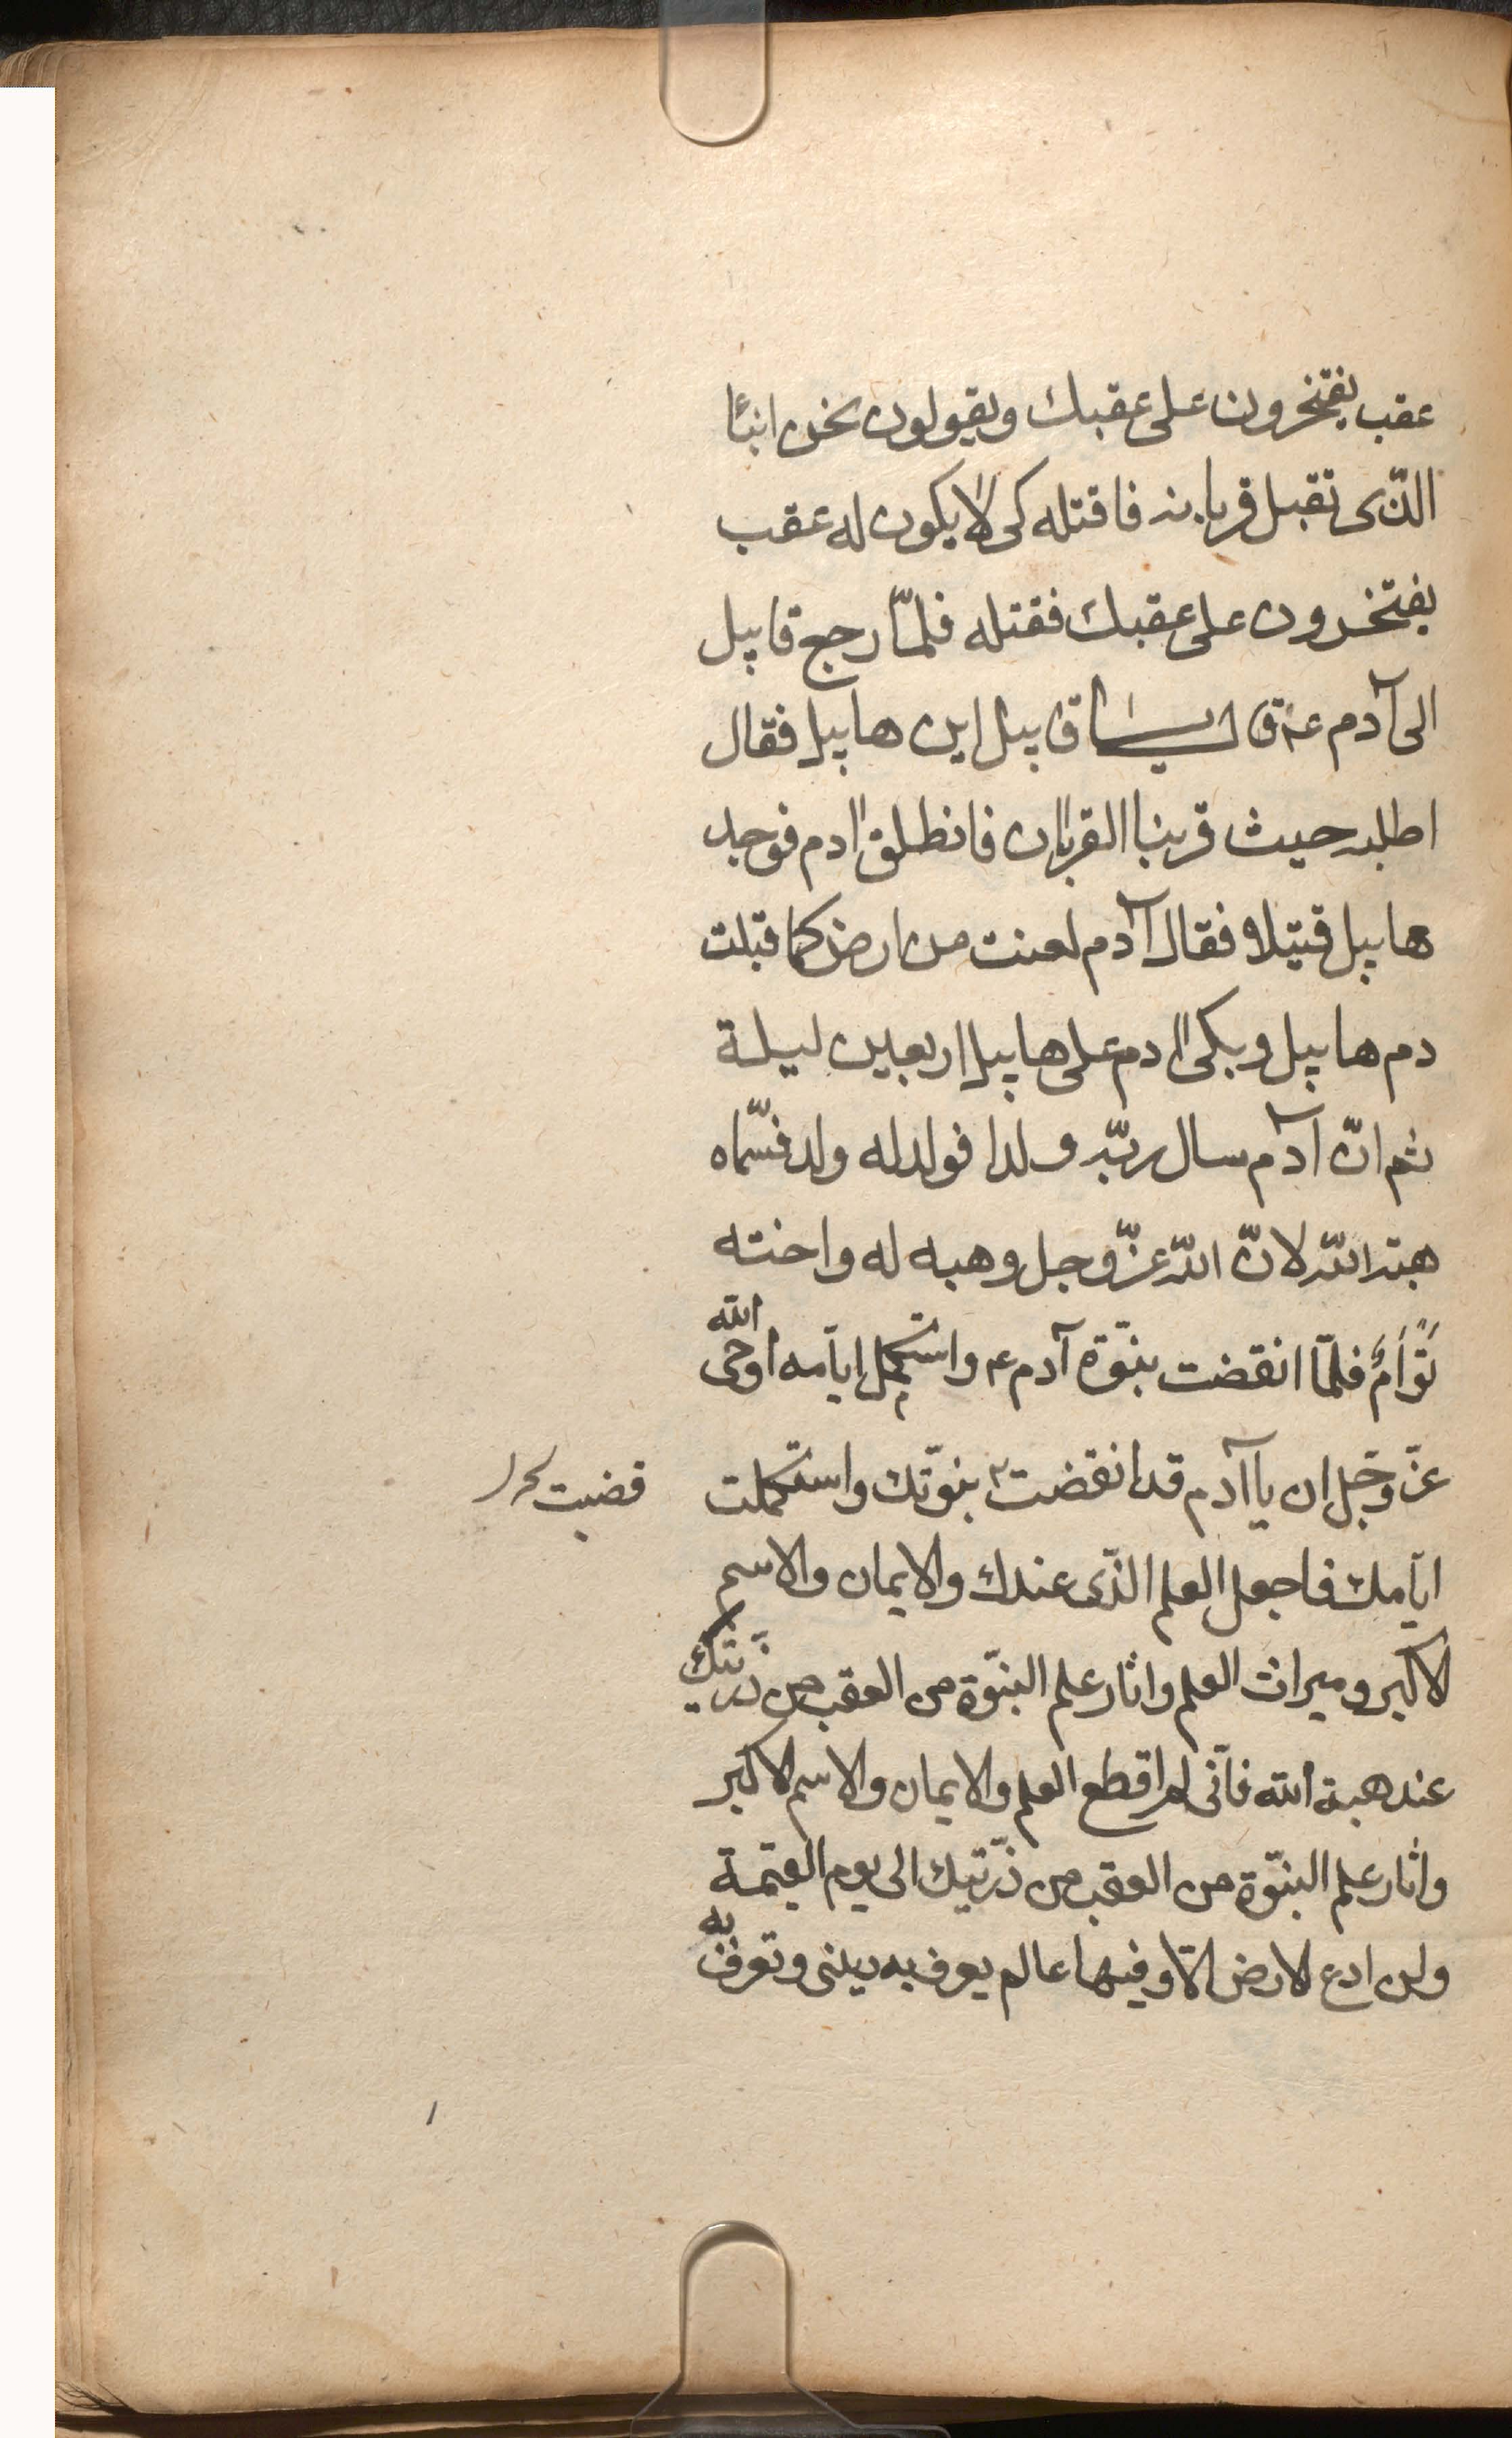 عقب يفتخرون على عقبك ويقولون نحن ابنا
الذى تقبل قربانه فاقتله كى لا يكون له عقب
يفتخرون على عقبك فقتله فلمّا رجع قابيل
الى آدم ع قال يا قابيل اين هابيل فقال
اطلبه حيث قربنا القربان فانطلق ادم فوجد
هابيل قتيلا فقال آدم لعنت من ارض كما قبلت
دم هابيل وبكى ادم على هابيل اربعين ليلة
ثم انّ آدم سال ربّه ولدا فولد له ولد فسّماه
هبة الله لانّ الله عزّ وجل وهبه له واخته
تَوْأمٌ فلمّا انقضت نبوّة آدم ع واستكمل ايّامه اوحى الله
عزّ وجّل ان يا آدم قد انقضت نبوّتك واستكملت
قضيت
ايّامك فاجعل العلم الذّى عندك والايمان والاسم
الاكبر وميراث العلم واثار علم النبّوة من العقب من ذرّيتك
عند هبة الله فانّى لم اقطع العلم والايمان والاسم الاكبر
واثار علم النبّوة من العقب من ذرّيتك الى يوم القيمة
ولن ادع الارض الّا وفيها عالم يعرف به دينى وتعرف به